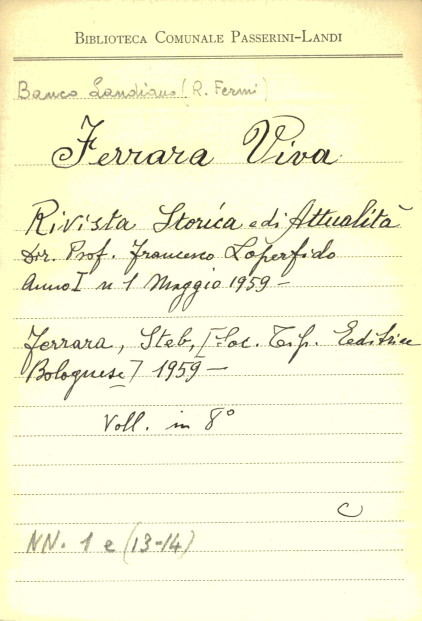 BIBLIOTECA COMUNALE PASSERINI-LANDI
Banco Landiano (R. Fermi)
Ferrara Viva
Rivista Storica e di Attualità
Dir. Prof. Francesco Loperfido
Anno I n 1 Maggio 1959 –
Ferrara, Steb, [Soc. Tip. Editrice
Bolognese] 1959 –
Voll. in 8°
C
NN. 1 e (13-14)